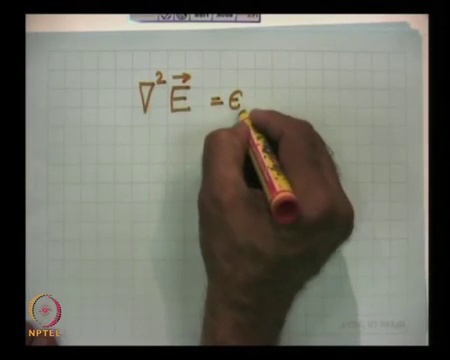 ∇² E⃗ = ε
NPTEL